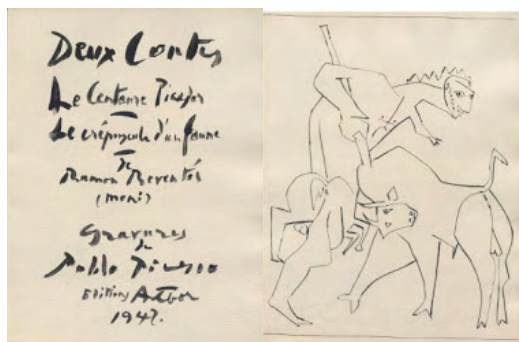 Deux Contes
Le Centaure Picador
Le crépuscule d'un faune
de
Ramon Reventós
(moni)
gravures
de
Pablo Picasso
Editions Arbor
1947.